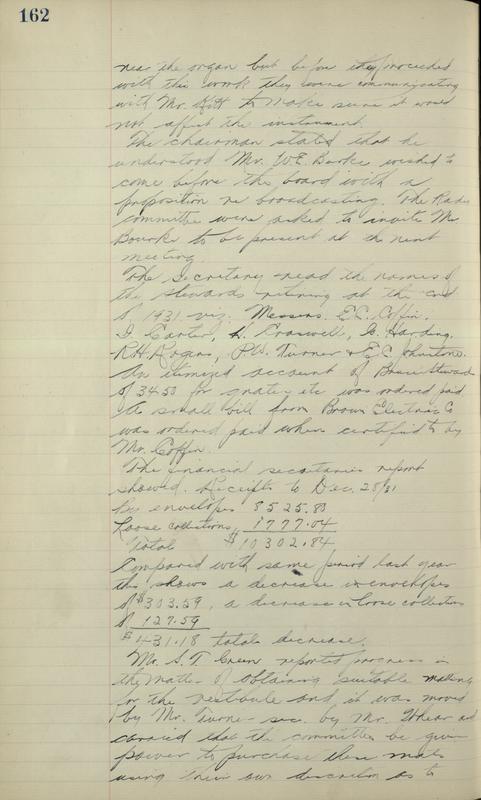 162
near the organ but before they proceeded
with this work they were communicating
with Mr. to make sure it would
not affect the instrument.
The chairman stated that he
understood Mr. W.E. Burke wished to
come before the board with a
proposition re broadcasting. The Radio
committee were asked to invite Mr
Bourke to be present at the next
meeting.
The Secretary read the names of
the stewards retiring at the end
of 1931 viz. Messers. E.C. Coffin,
Carter, H. Croswell, G. Harding,
R.H. Rogers, P.W. Turner & E.C. Johnstone.
An itemized account of Stewart
of 34.50 for grates etc was ordered paid
A small bill from Brown Electric Co
was ordered paid when certified to by
Mr. Coffin.
The financial secretaries report
showed. Receipts to Dec. 28/31
By envelopes 8525.80
Loose collections, 1777.04
Total $10302.84
Compared with same period last year
this shows a decrease in envelopes
of $303.59, a decrease in loose collections
of 127.59
$431.18 total decrease.
Mr. S.T. Green reported progress in
the matter of obtaining suitable matting
for the vestibule and it was moved
by Mr. Turner sec. by Mr. and
carried that the committee be given
power to purchase these mats
using their own discretion as to